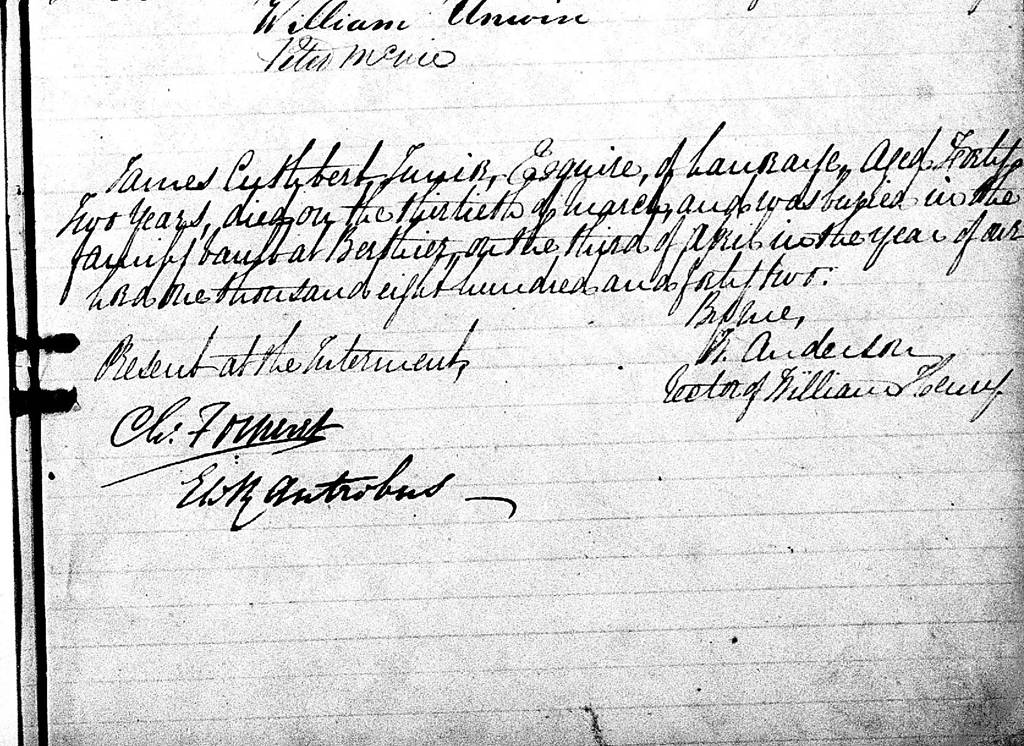 William Unwin
Peter McVie
James Cuthbert Junior, Esquire, of Lanoraye, Aged Forty
Two Years, died on the thirtieth of March, and was buried in the
family vault at Berthier, on the third of April in the year of our
Lord one thousand eight hundred and forty two.
By Me,
Present at the Interment,
W. Anderson
Rector of William Henry.
Ch. Forneret
Antrobus